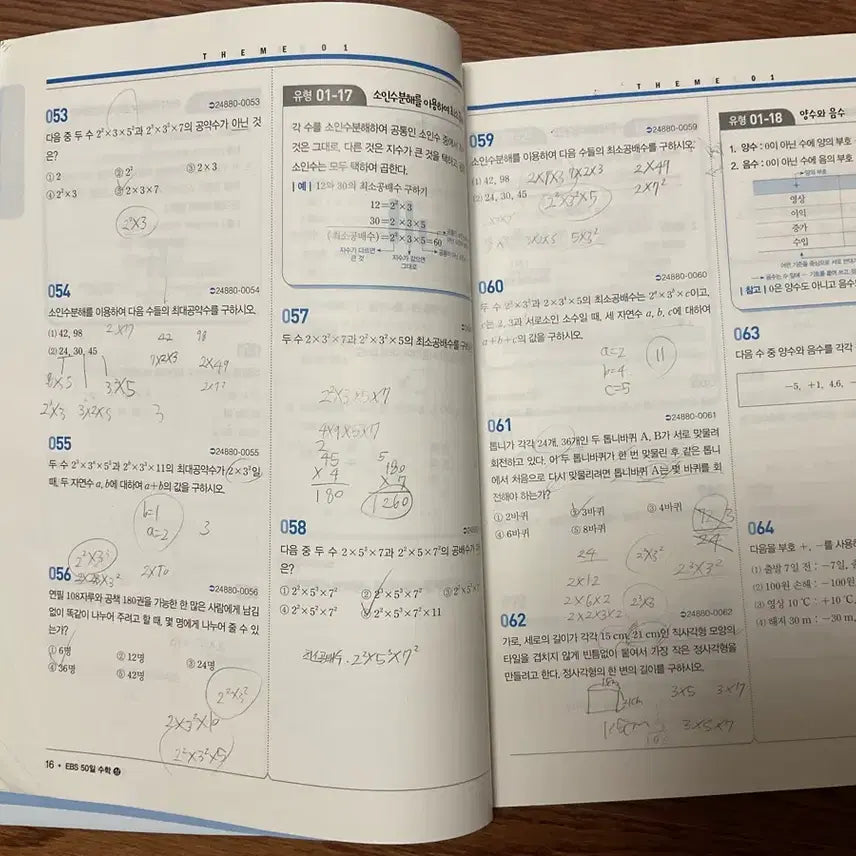 THEME 01
053
24880-0053
다음 중 두 수 2²×3×5²과 2³×3²×7의 공약수가 아닌 것
은?
① 2
② 2²
③ 2×3
④ 2²×3
⑤ 2×3×7
2²×3
054
24880-0054
소인수분해를 이용하여 다음 수들의 최대공약수를 구하시오.
(1) 42, 98
(2) 24, 30, 45
2×7
42
98
7×2×3
2×49
3²×5
2³×3
3×2×5
3
055
24880-0055
때, 두 자연수 a, b에 대하여 a+b의 값을 구하시오.
b=1
a=2
3
2²×3³
056
24880-0056
연필 108자루와 공책 180권을 가능한 한 많은 사람에게 남김
없이 똑같이 나누어 주려고 할 때, 몇 명에게 나누어 줄 수 있
는가?
① 6명
② 12명
③ 24명
④ 36명
⑤ 42명
2²×3²
2²×3²×5
16 • EBS 50일 수학
유형 01-17
소인수분해를 이용하여
각 수를 소인수분해하여 공통인 소인수 중에서
것은 그대로, 다른 것은 지수가 큰 것을 택하고
소인수는 모두 택하여 곱한다.
| 예 | 12와 30의 최소공배수 구하기
12=2²×3
30=2 ×3×5
(최소공배수)=2²×3×5=60
지수가 다르면
큰 것
지수가 같으면
그대로
057
두 수 2×3²×7과 2²×3²×5의 최소공배수를
2²×3²×5×7
4×9×5×7
45
× 4
180
180
× 7
1260
058
다음 중 두 수 2×5²×7과 2²×5×7²의 공배수가
은?
① 2²×5²×7²
② 2²×5³×7²
④ 2³×5²×7²
⑤ 2²×5²×7²×11
최소공배수
THEME 01
059
24880-0059
소인수분해를 이용하여 다음 수들의 최소공배수를 구하시오.
(1) 42, 98
(2) 24, 30, 45
7×2×3
2×49
2×7²
2³×3²×5
3×2×5
5×3²
060
24880-0060
c는 2, 3과 서로소인 소수일 때, 세 자연수 a, b, c에 대하여
a+b+c의 값을 구하시오.
a=2
b=4
c=5
11
061
24880-0061
톱니가 각각 24개, 36개인 두 톱니바퀴 A, B가 서로 맞물려
회전하고 있다. 어느 두 톱니바퀴가 한 번 맞물린 후 같은 톱니
에서 처음으로 다시 맞물리려면 톱니바퀴 A는 몇 바퀴를 회
전해야 하는가?
① 2바퀴
② 3바퀴
③ 4바퀴
④ 6바퀴
⑤ 8바퀴
24
2×12
2×6×2
2×2×3×2
2³×3
2²×3²
2³×3²
062
24880-0062
가로, 세로의 길이가 각각 15 cm, 21 cm인 직사각형 모양의
타일을 겹치지 않게 빈틈없이 붙여서 가장 작은 정사각형을
만들려고 한다. 정사각형의 한 변의 길이를 구하시오.
3×5
3×7
3×5×7
유형 01-18
양수와 음수
1. 양수 : 0이 아닌 수에 양의 부호
2. 음수 : 0이 아닌 수에 음의 부호
+
영상
이익
증가
수입
| 참고 | 0은 양수도 아니고 음수
063
다음 수 중 양수와 음수를 각각
-5, +1, 4.6,
064
다음을 부호 +, -를 사용하
(1) 출발 7일 전 : -7일,
(2) 100원 손해 : -100원,
(3) 영상 10 ℃ : +10 ℃,
(4) 해저 30 m : -30 m,